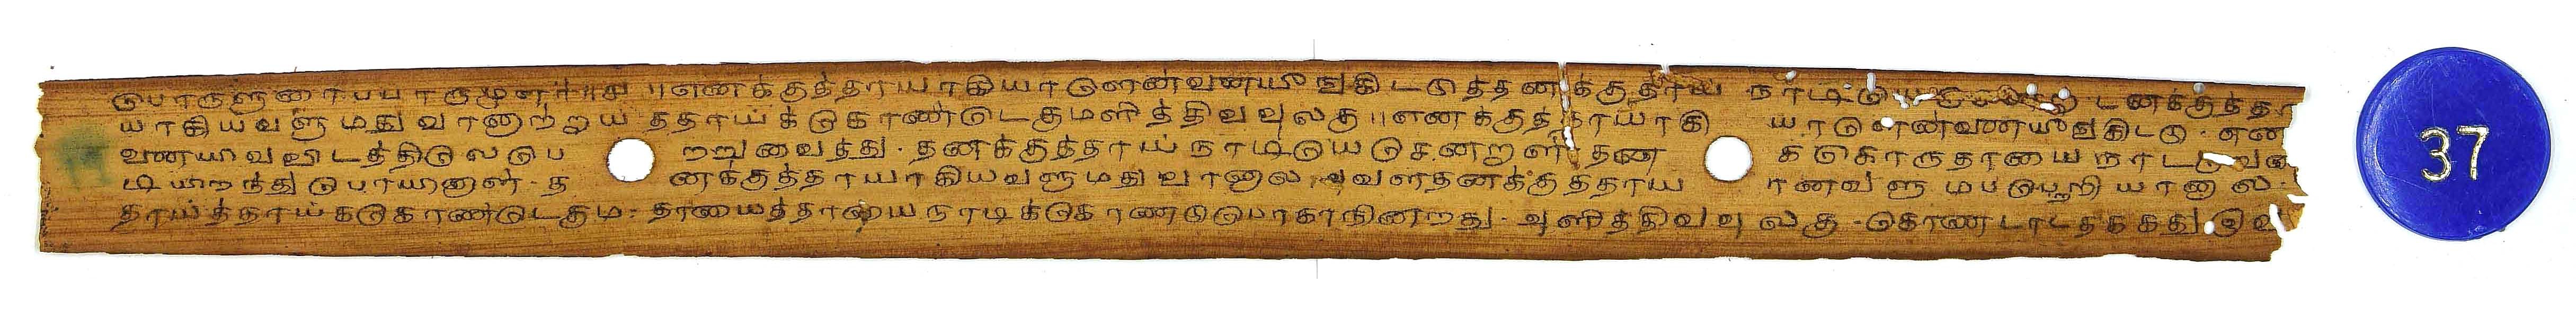 பொருளுரைப்பாருமுளர் ॥ எனக்குத்தாயாகியாளென்னையீங்கிட்டுத்தனக்குத்தாய் நாடியே டனக்குத்தா
யாகியவளுமதுவானாற்றாய்த்தாய்க்கொண்டேகுமளித்திவ்வுலகு ॥ எனக்குத்தாயாகி யாளென்னையீங்கிட்டு - என்
னையிவ்விடத்திலேப ற்றுவைத்து - தனக்குத்தாய்நாடியேசென்றாள் தன க்கொருதாயைநாட
டியிறந்துபோயினாள் - த னக்குத்தாயாகியவளுமதுவானால் அவள்தனக்குத்தாய் ானவளு மப்படி யானால் -
தாய்த்தாய்க்கொண்டேகும் - தாயைத்தாயைநாடிக்கொண்டுபோகாநின்றது - அளித்திவ்வு லகு - கொண்டாடத்தக்கது
37